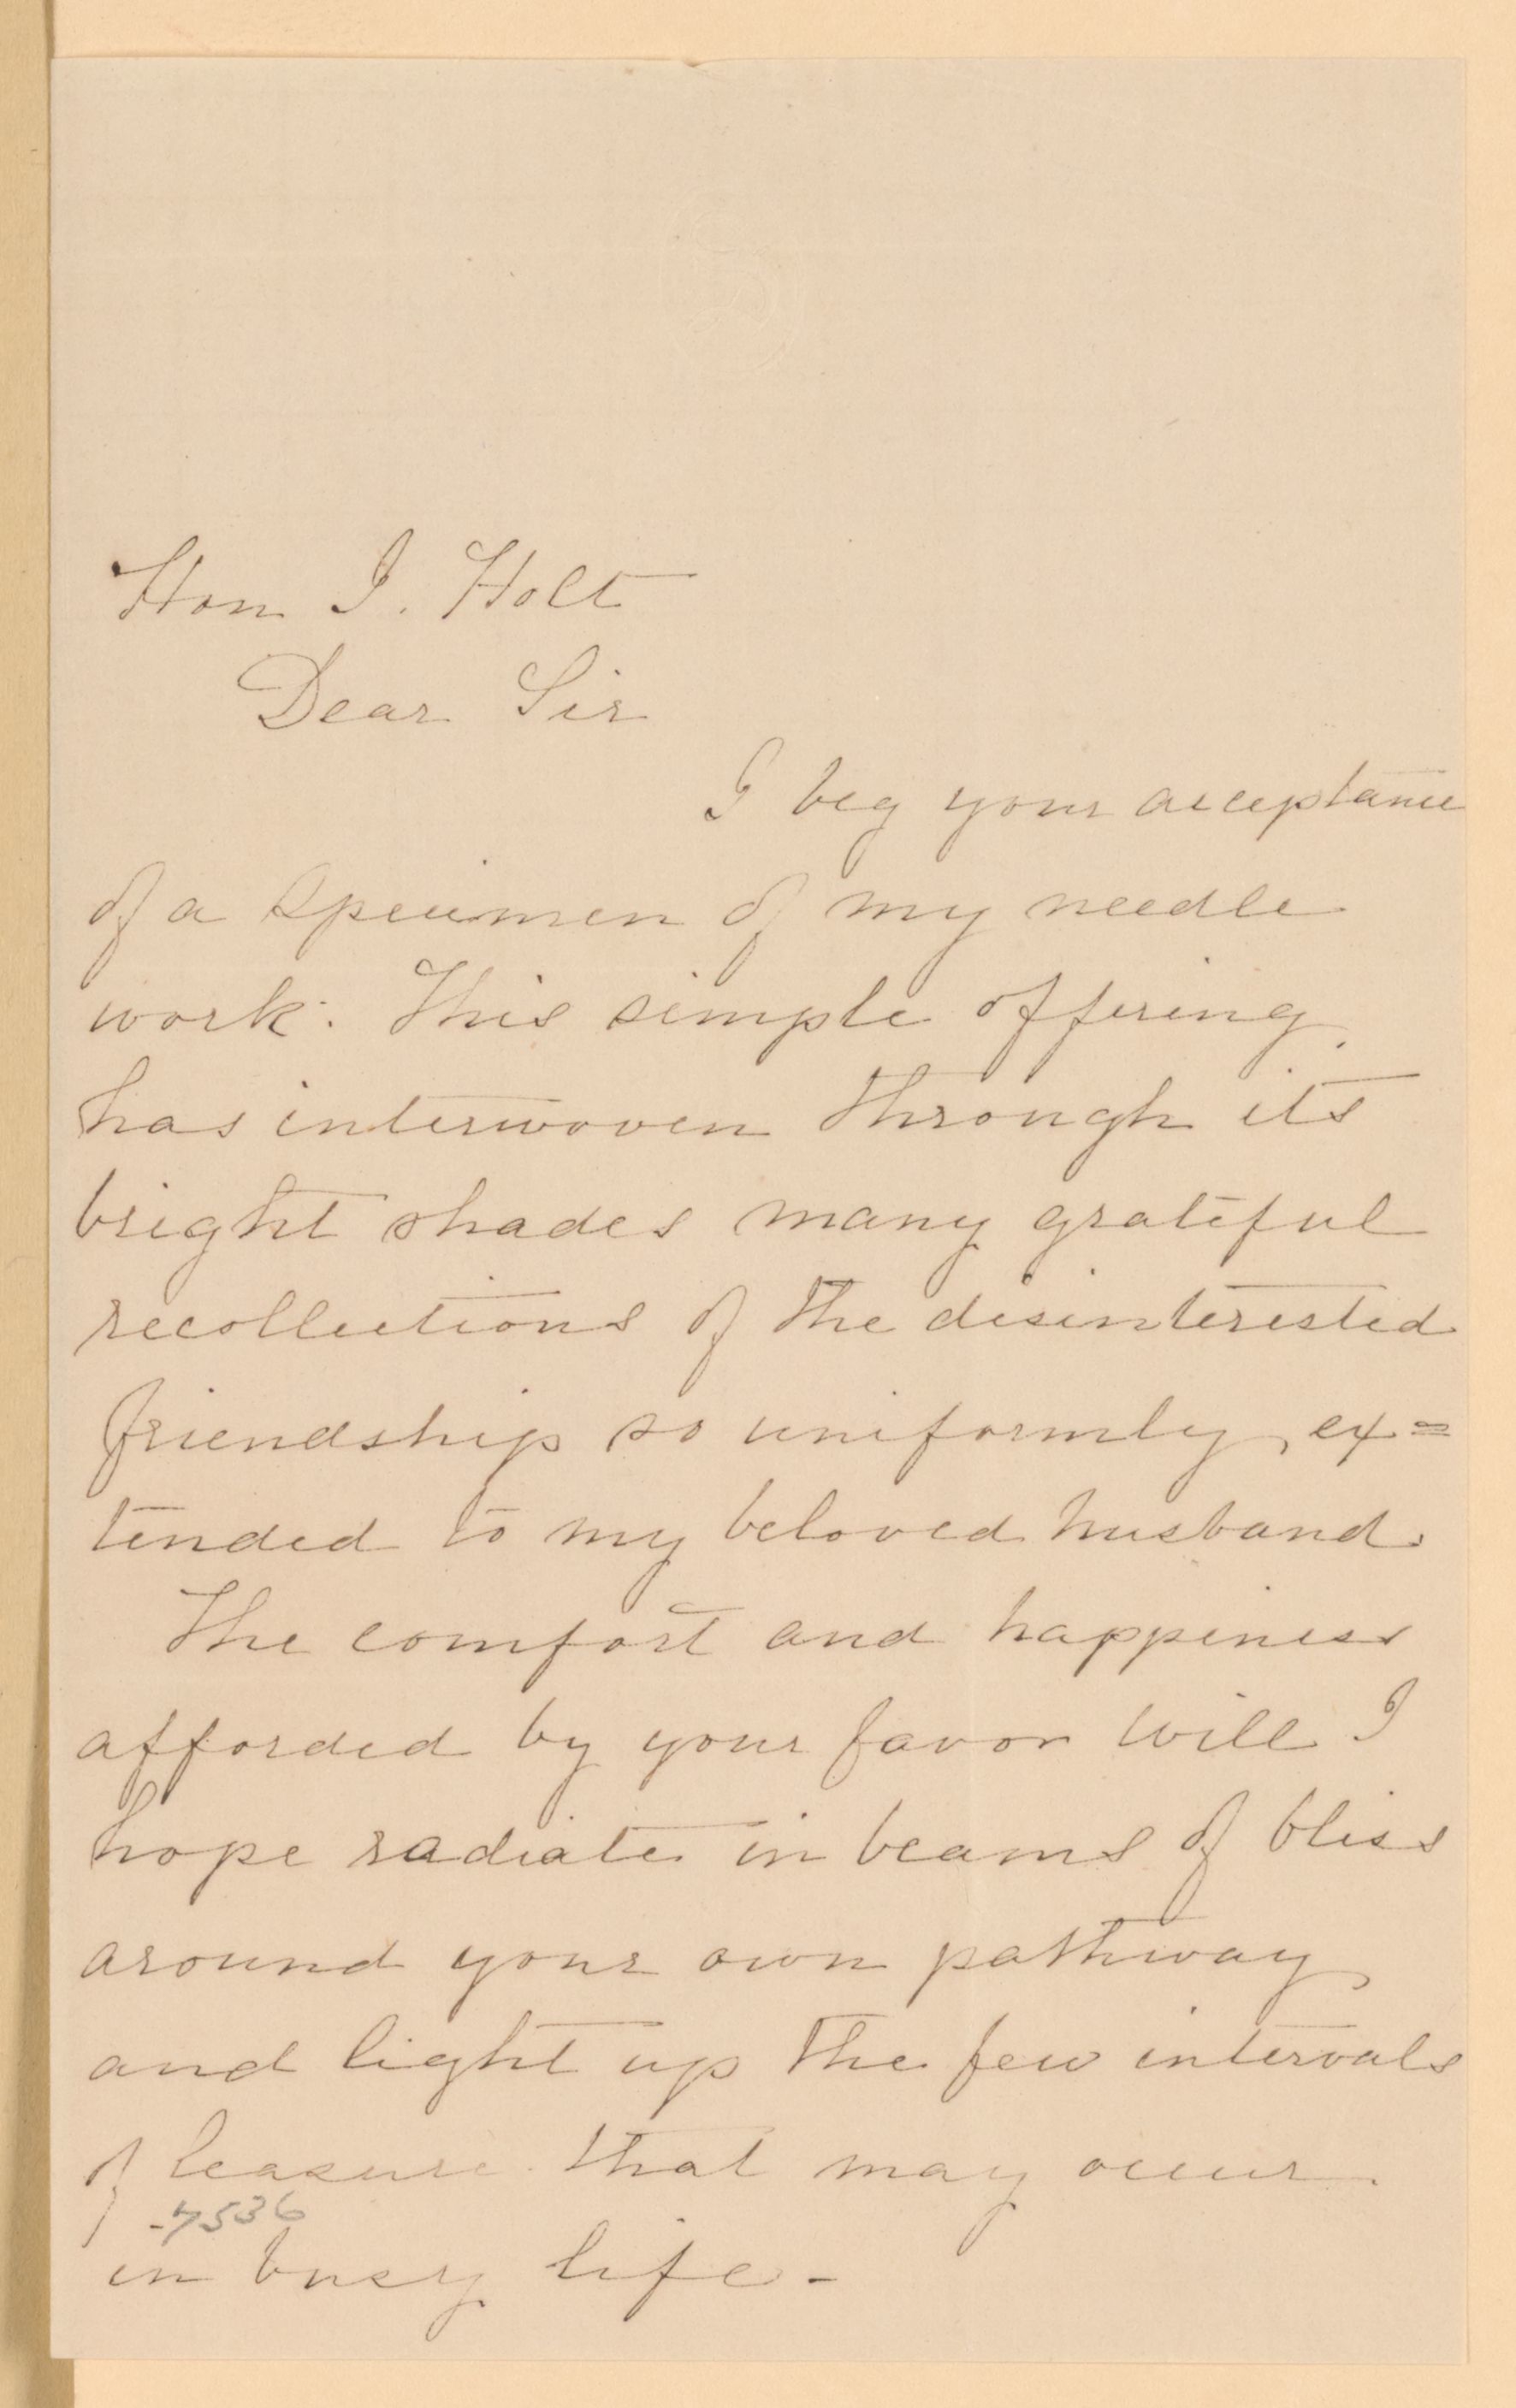 Hon J. Holt
Dear Sir
I beg your acceptance
of a specimen of my needle
work. This simple offering
has interwoven through its
bright shades many grateful
recollections of the disinterested
friendship so uniformly ex=
tended to my beloved husband.
The comfort and happiness
afforded by your favor will I
hope radiate in beams of bliss
around your own pathway
and light up the few intervals
of leasure that may occur
7536
in busy life -